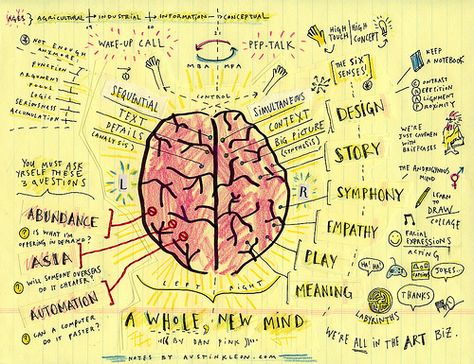 AGES: AGRICULTURAL → INDUSTRIAL → INFORMATION → CONCEPTUAL
WAKE-UP CALL
PEP-TALK
MBA MFA
HIGH TOUCH
HIGH CONCEPT
NOT ENOUGH
ANYMORE:
FUNCTION
ARGUMENT
FOCUS
LOGIC
SERIOUSNESS
ACCUMULATION
CONTROL
SEQUENTIAL
TEXT
DETAILS
(ANALYSIS)
SIMULTANEOUS
CONTEXT
BIG PICTURE
(SYNTHESIS)
L
R
LEFT RIGHT
YOU MUST ASK
YRSELF THESE
3 QUESTIONS
ABUNDANCE
IS WHAT I'M
OFFERING IN DEMAND?
ASIA
WILL SOMEONE OVERSEAS
DO IT CHEAPER?
AUTOMATION
CAN A COMPUTER
DO IT FASTER?
THE SIX
SENSES!
DESIGN
STORY
SYMPHONY
EMPATHY
PLAY
MEANING
KEEP
A NOTEBOOK
CONTRAST
REPETITION
ALIGNMENT
PROXIMITY
WE'RE
JUST CAVEMEN
WITH
BRIEFCASES
THE ANDROGYNOUS
MIND
LEARN
TO
DRAW
COLLAGE
FACIAL
EXPRESSIONS
ACTING
HA! HA!
GAMES
JOKES..
LABYRINTHS
THANKS
WE'RE ALL IN THE ART BIZ.
A WHOLE NEW MIND
BY DAN PINK
NOTES BY AUSTINKLEON.COM